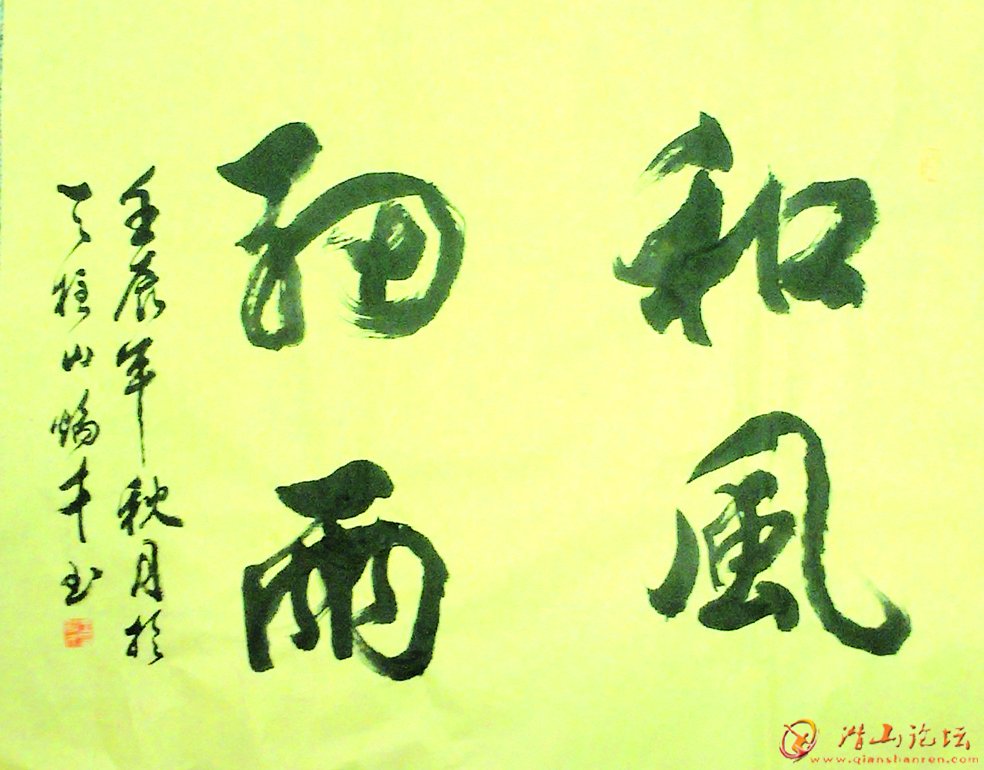 和風
細雨
壬辰年秋月於
天柱山蝸牛书
潜山论坛
www.qianshanren.com